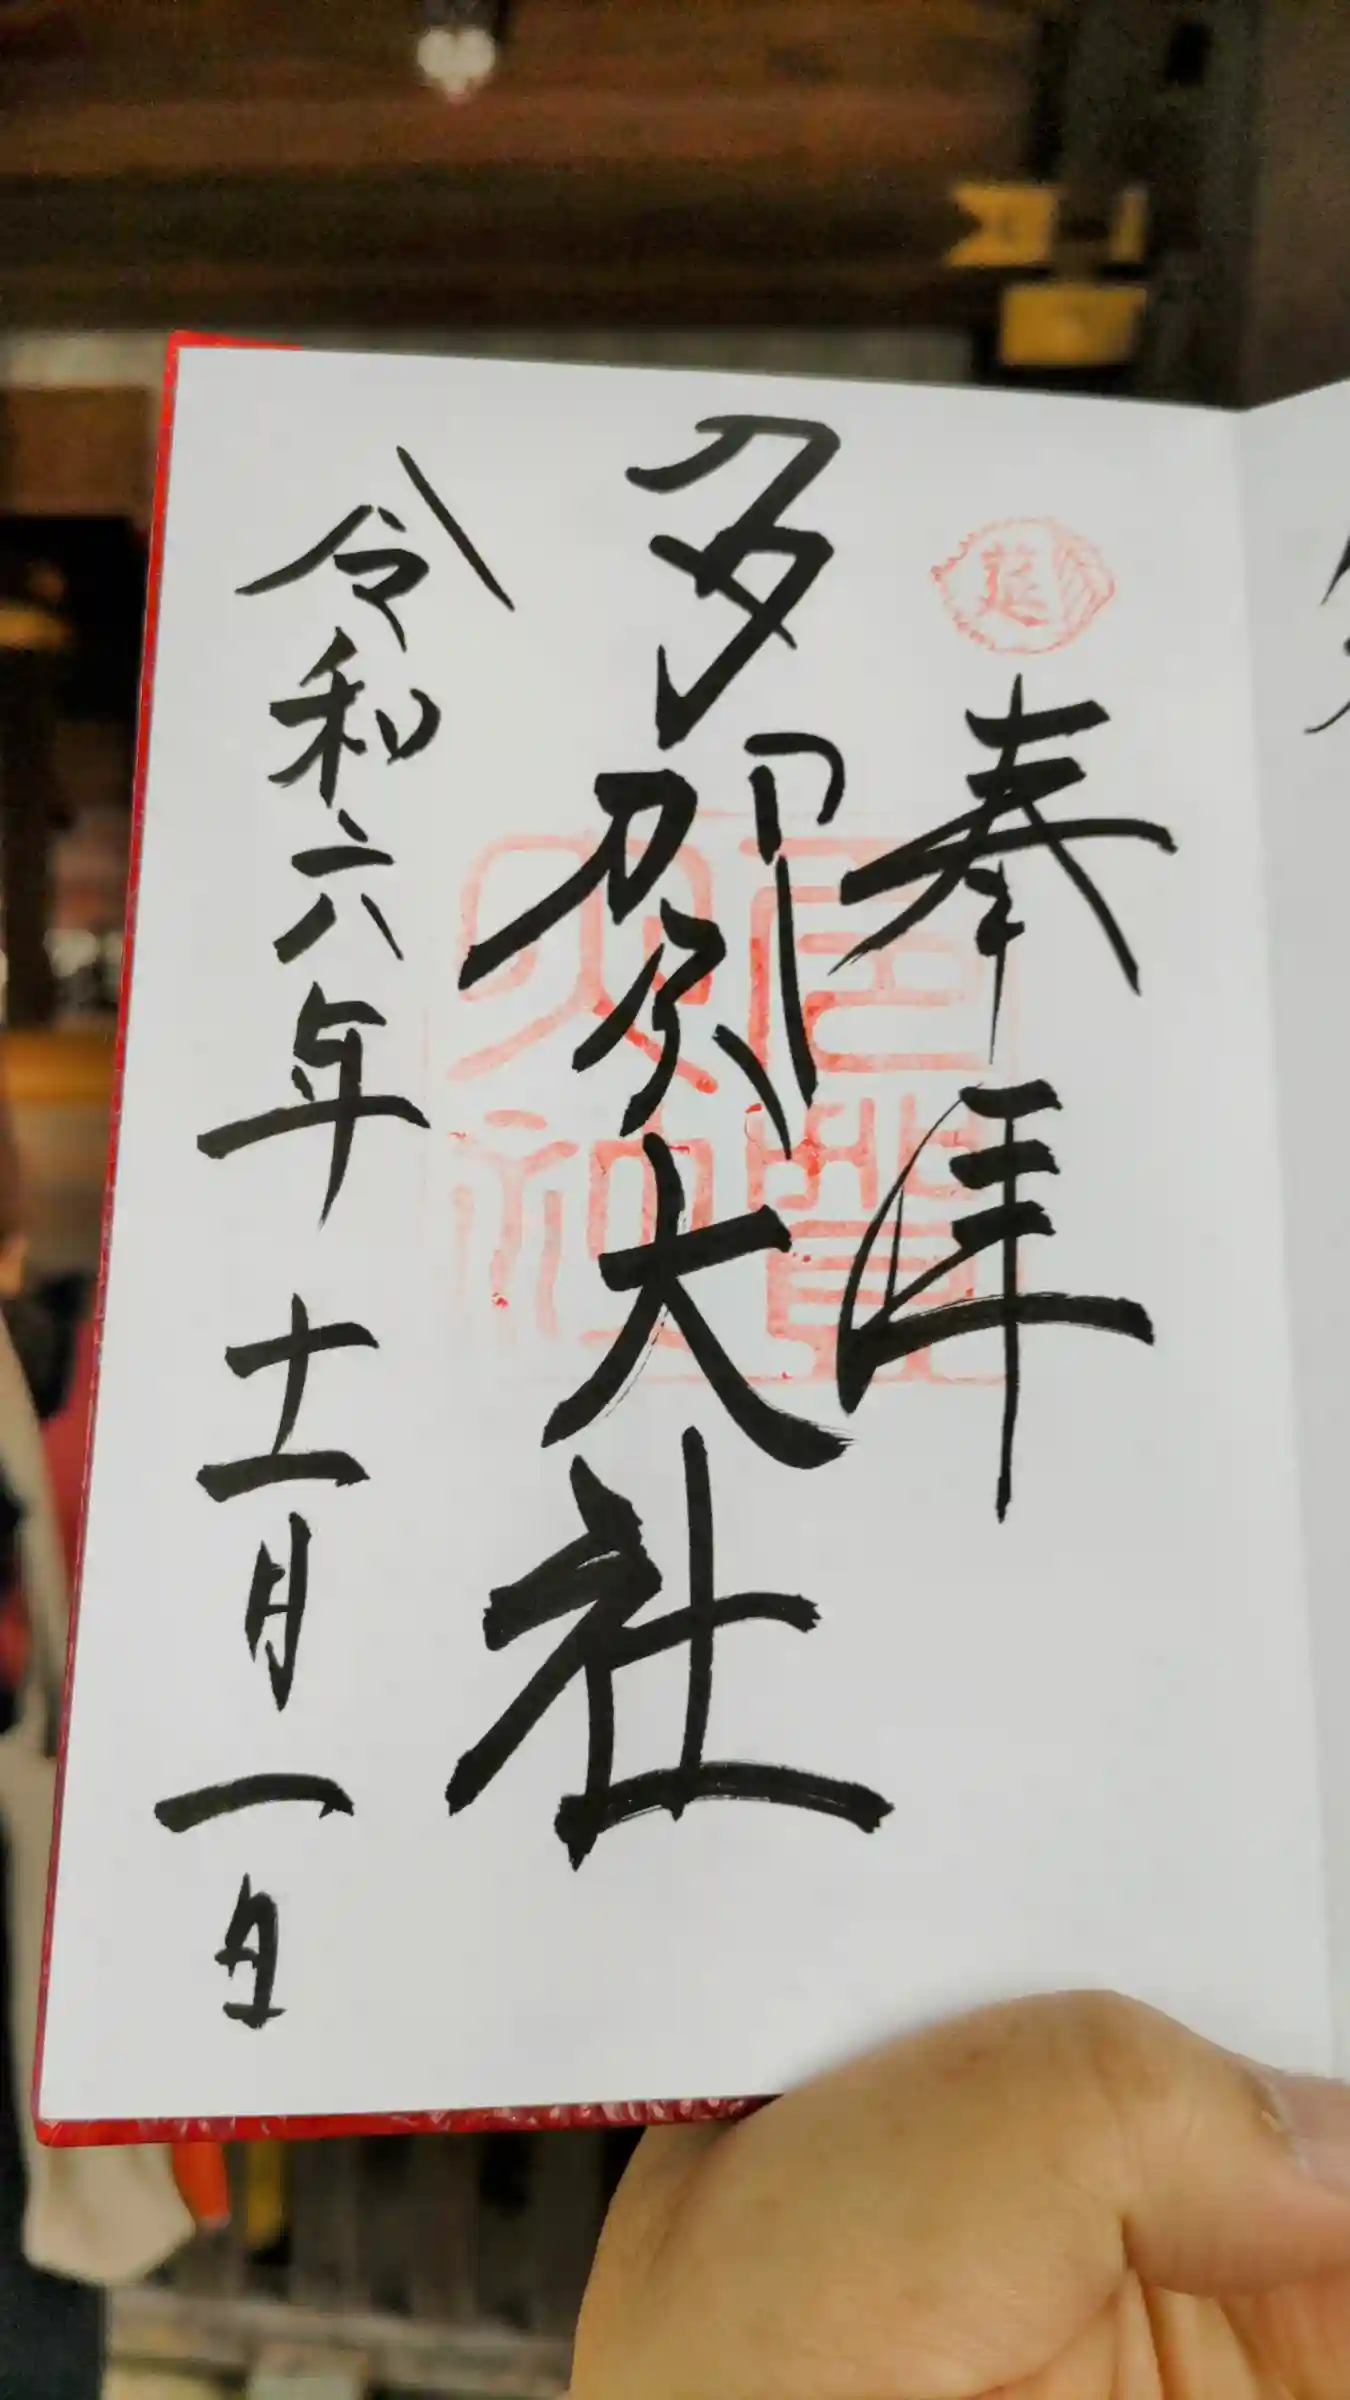 奉拝
多賀大社
令和六年十一月一日
延